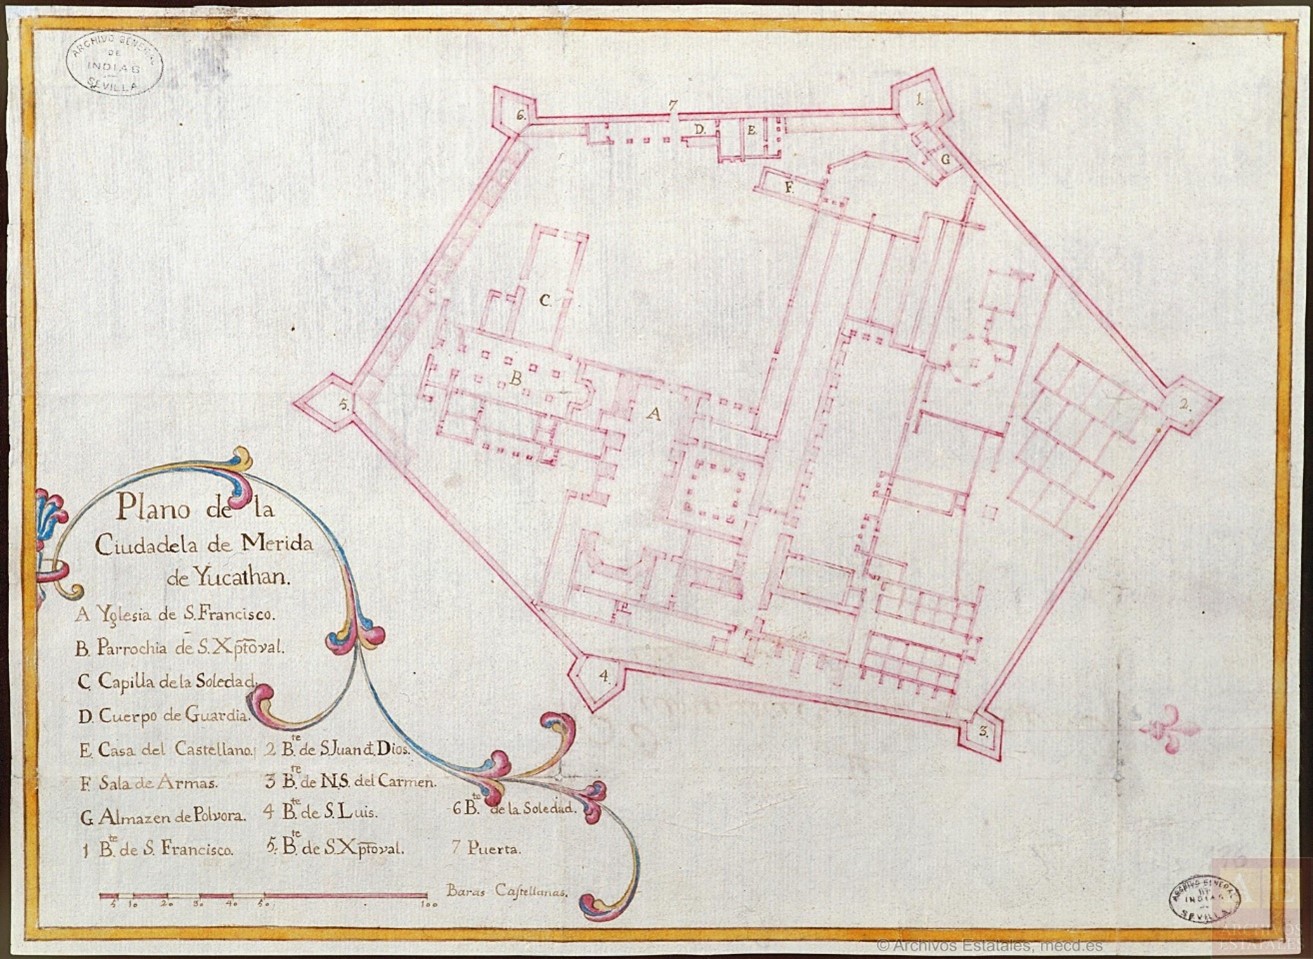 ARCHIVO GENERAL
DE
INDIAS
SEVILLA
6.
7
1.
D.
E
G
F.
C.
B
A
2.
5.
4
3.
Plano de la
Ciudadela de Merida
de Yucathan.
A Yglesia de S. Francisco.
B. Parrochia de S. Xptoval.
C. Capilla de la Soledad.
D. Cuerpo de Guardia.
E. Casa del Castellano.
F. Sala de Armas.
G. Almazen de Polvora.
1 B.te de S. Francisco.
2 B.te de S. Juan d. Dios.
3 B.te de N.S. del Carmen.
4 B.te de S. Luis.
5. B.te de S. Xptoval.
6 B.te de la Soledad.
7 Puerta.
5 10 20 30 40 50 100
Baras Castellanas.
ARCHIVO GENERAL
DE
INDIAS
SEVILLA
© Archivos Estatales, mecd.es